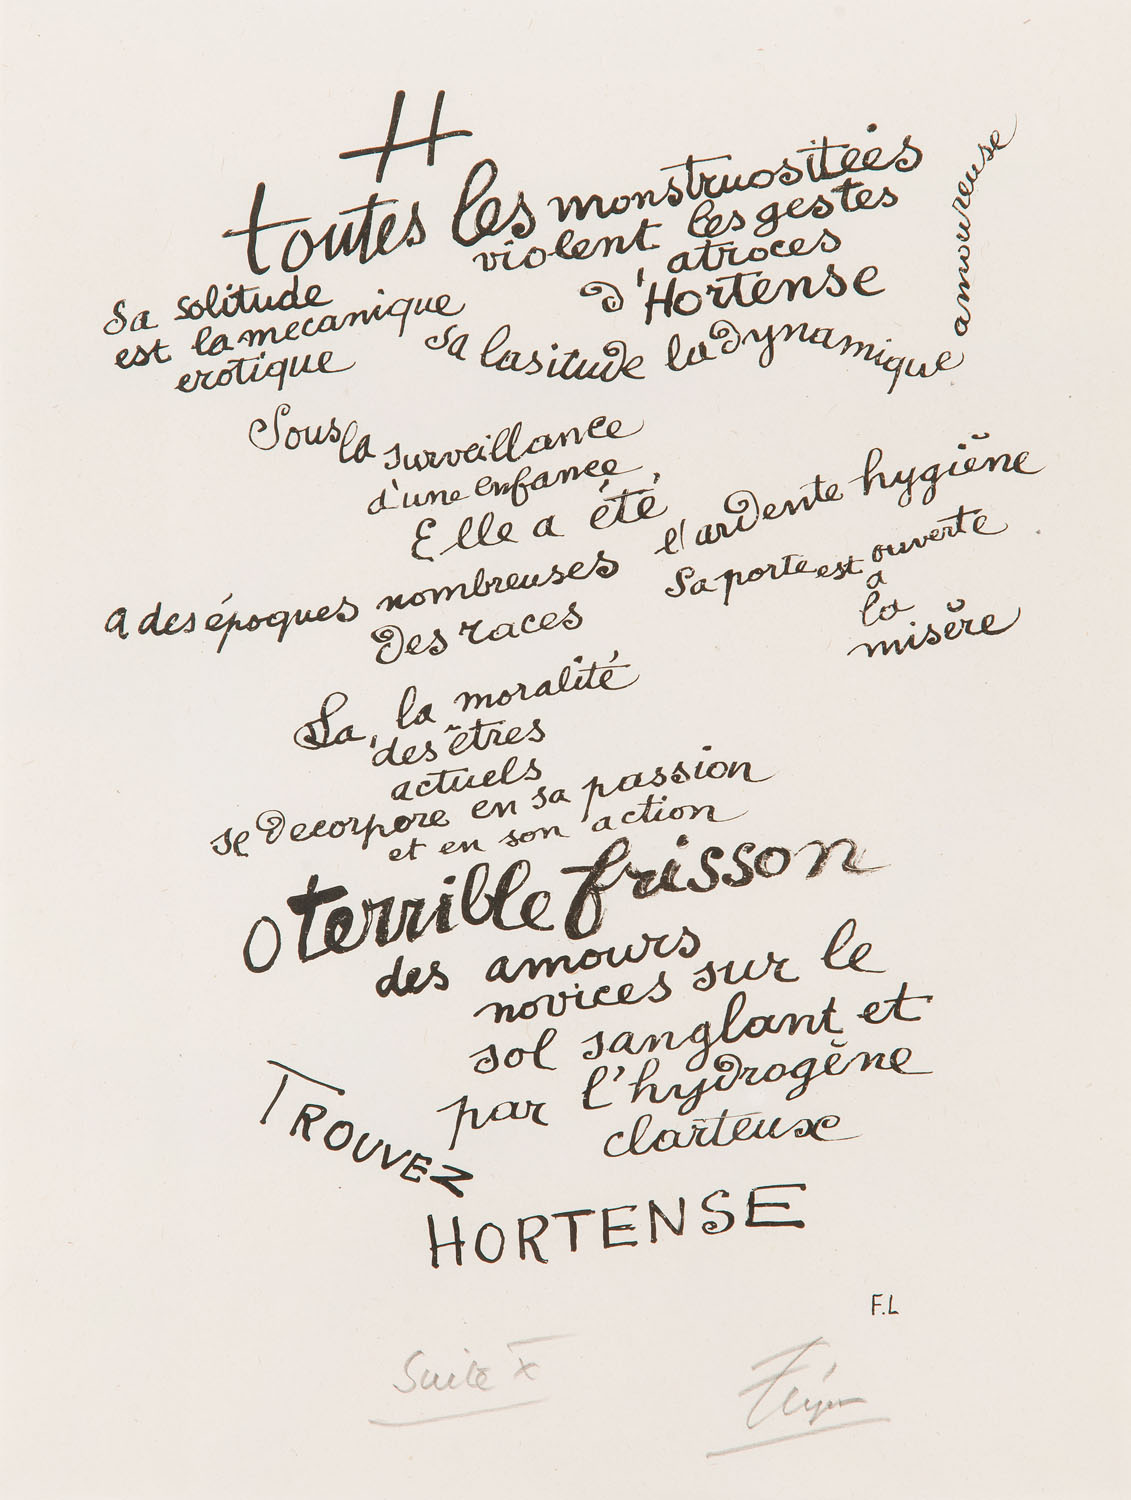 H
toutes les monstruositées
violent les gestes
atroces
d'Hortense
Sa solitude
est la mecanique
erotique
Sa lasitude la dynamique amoureuse
Sous la surveillance
d'une enfance
Elle a été,
a des époques nombreuses
des races
l'ardente hygiène
Sa porte est ouverte
a
la
misère
La, la moralité
des êtres
actuels
se decorpore en sa passion
et en son action
O terrible frisson
des amours
novices sur le
sol sanglant et
par l'hydrogène
clarteux
TROUVEZ
HORTENSE
F.L
Suite X